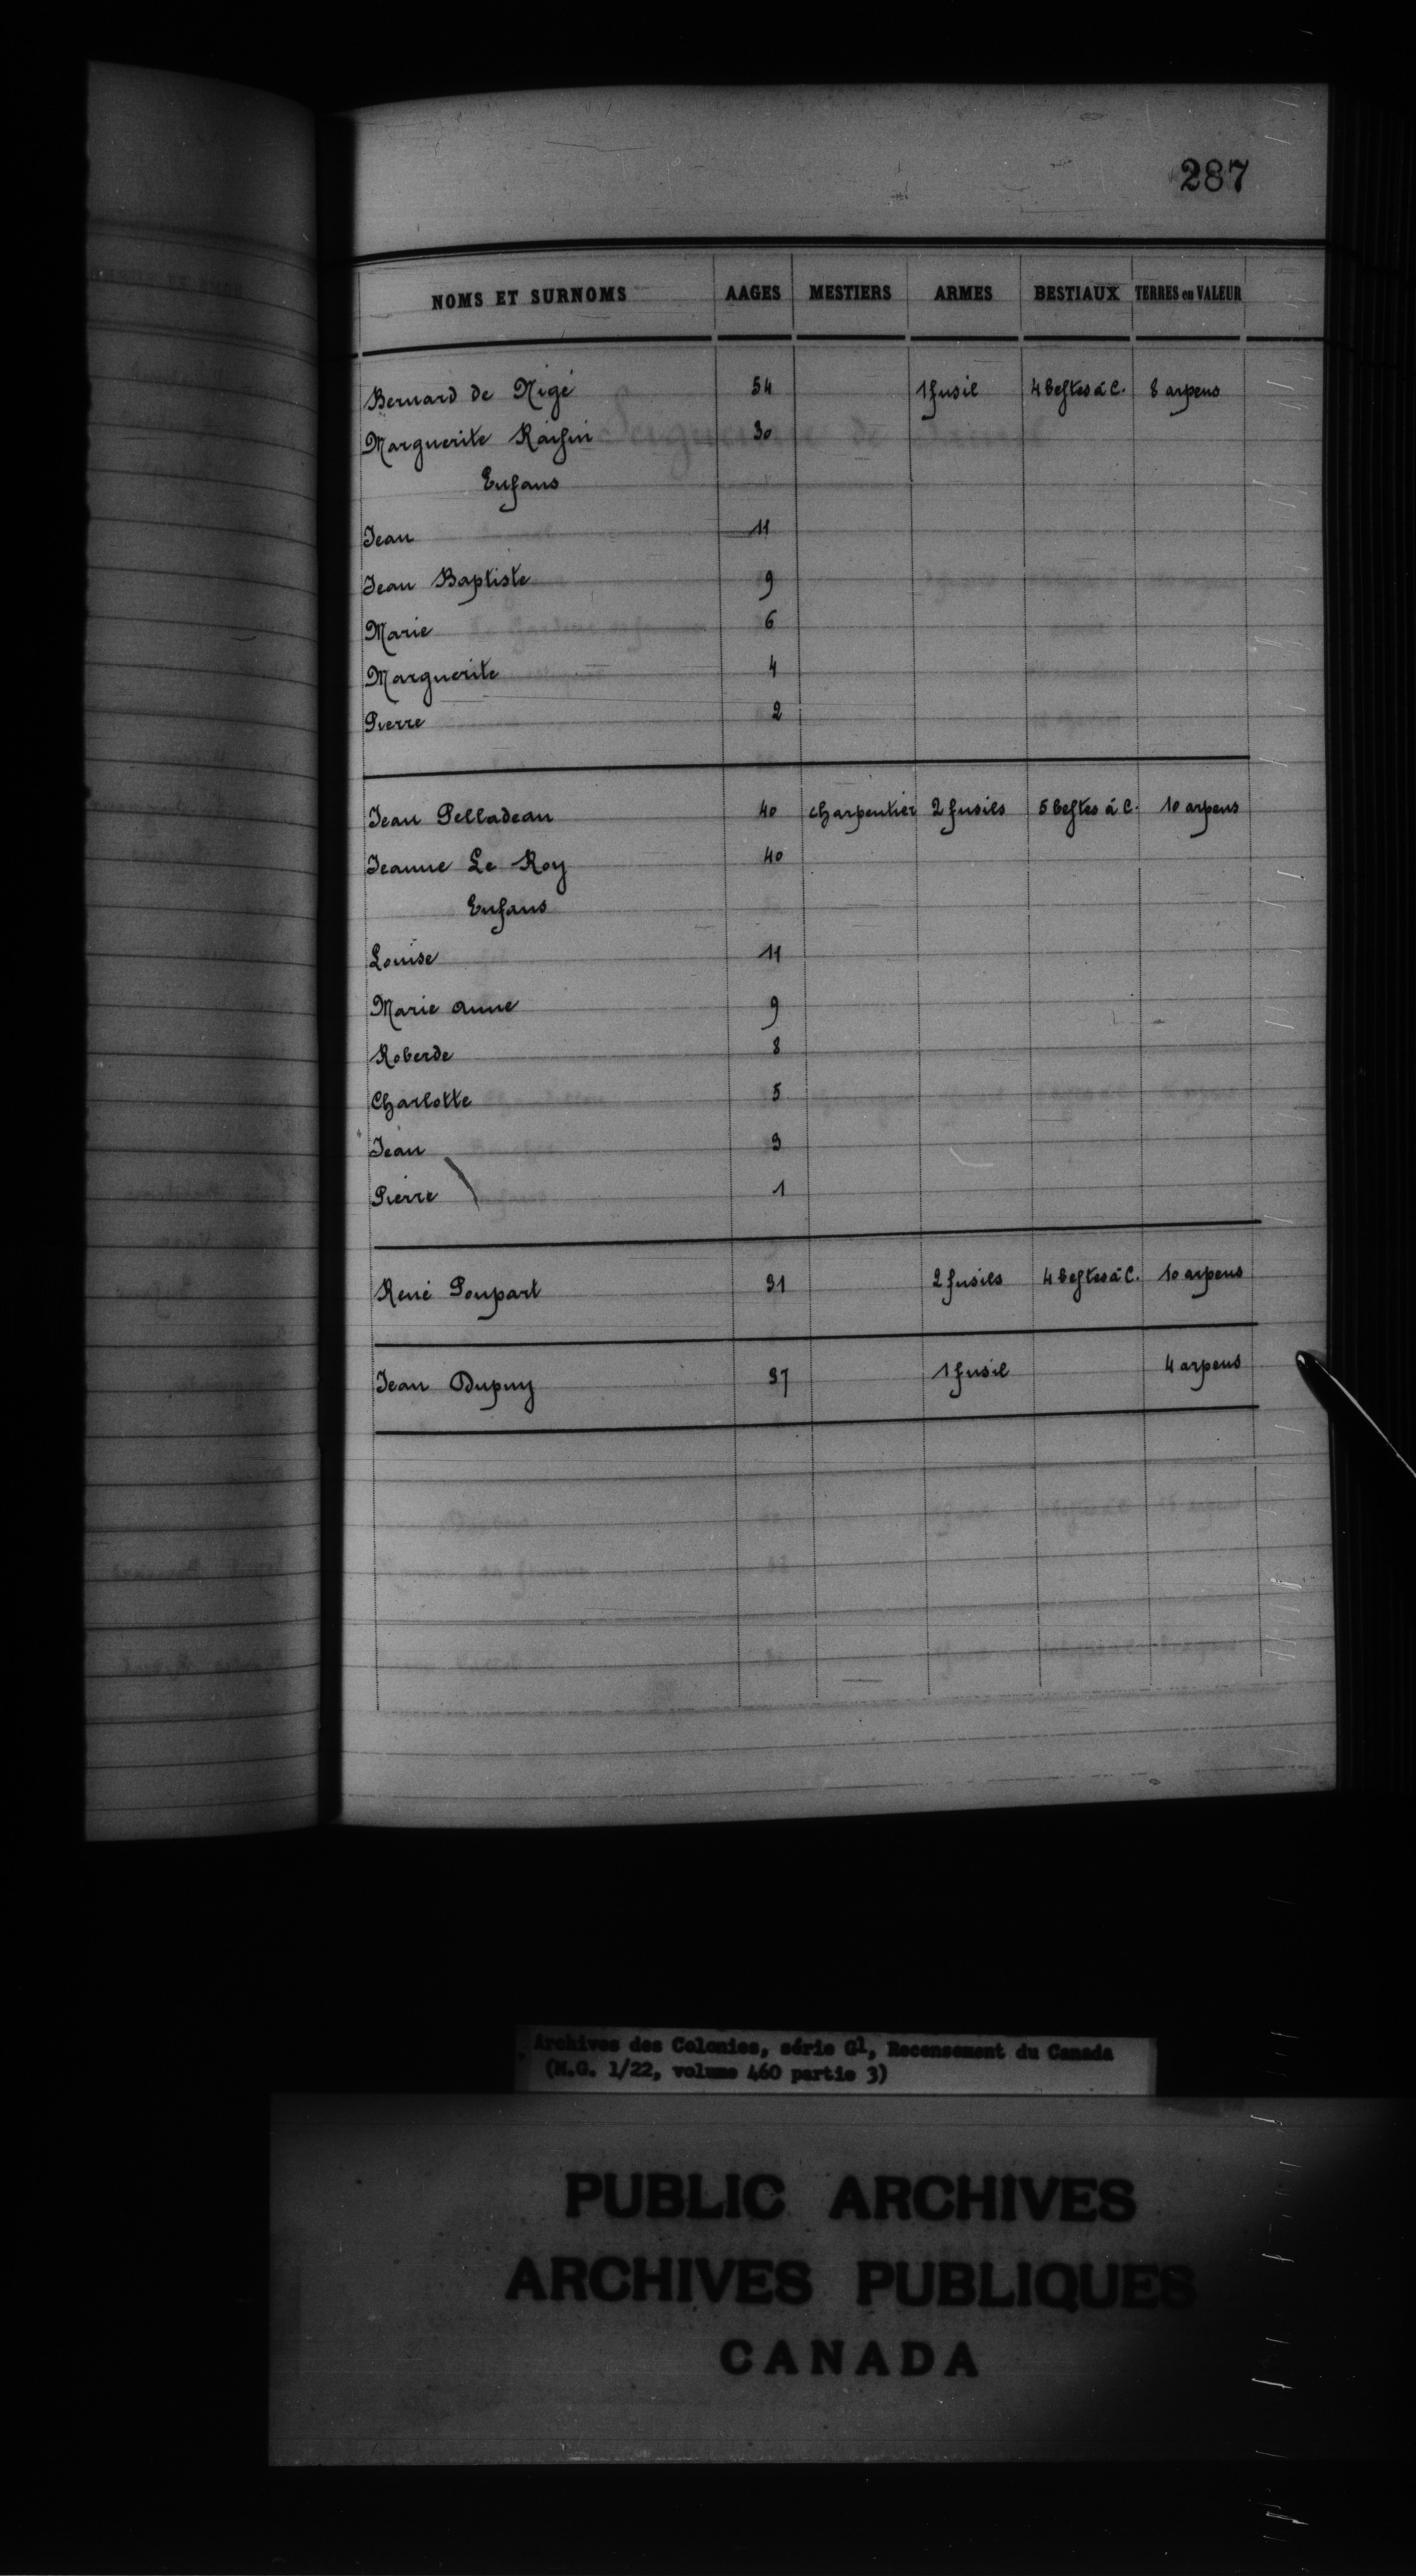 287
NOMS ET SURNOMS AAGES MESTIERS ARMES BESTIAUX TERRES en VALEUR
Bernard de Nigé 54 1 fusil 4 bestes à C. 8 arpens
Marguerite Raisin 30
Enfans
Jean 11
Jean Baptiste 9
Marie 6
Marguerite 4
Pierre 2
Jean Pelladeau 40 charpentier 2 fusils 5 bestes à C. 10 arpens
Jeanne Le Roy 40
Enfans
Louise 11
Marie anne 9
Roberde 8
Charlotte 5
Jean 3
Pierre 1
René Poupart 31 2 fusils 4 bestes à C. 10 arpens
Jean Dupuy 37 1 fusil 4 arpens
Archives des Colonies, série G1, Recensement du Canada
(M.G. 1/22, volume 460 partie 3)
PUBLIC ARCHIVES
ARCHIVES PUBLIQUES
CANADA